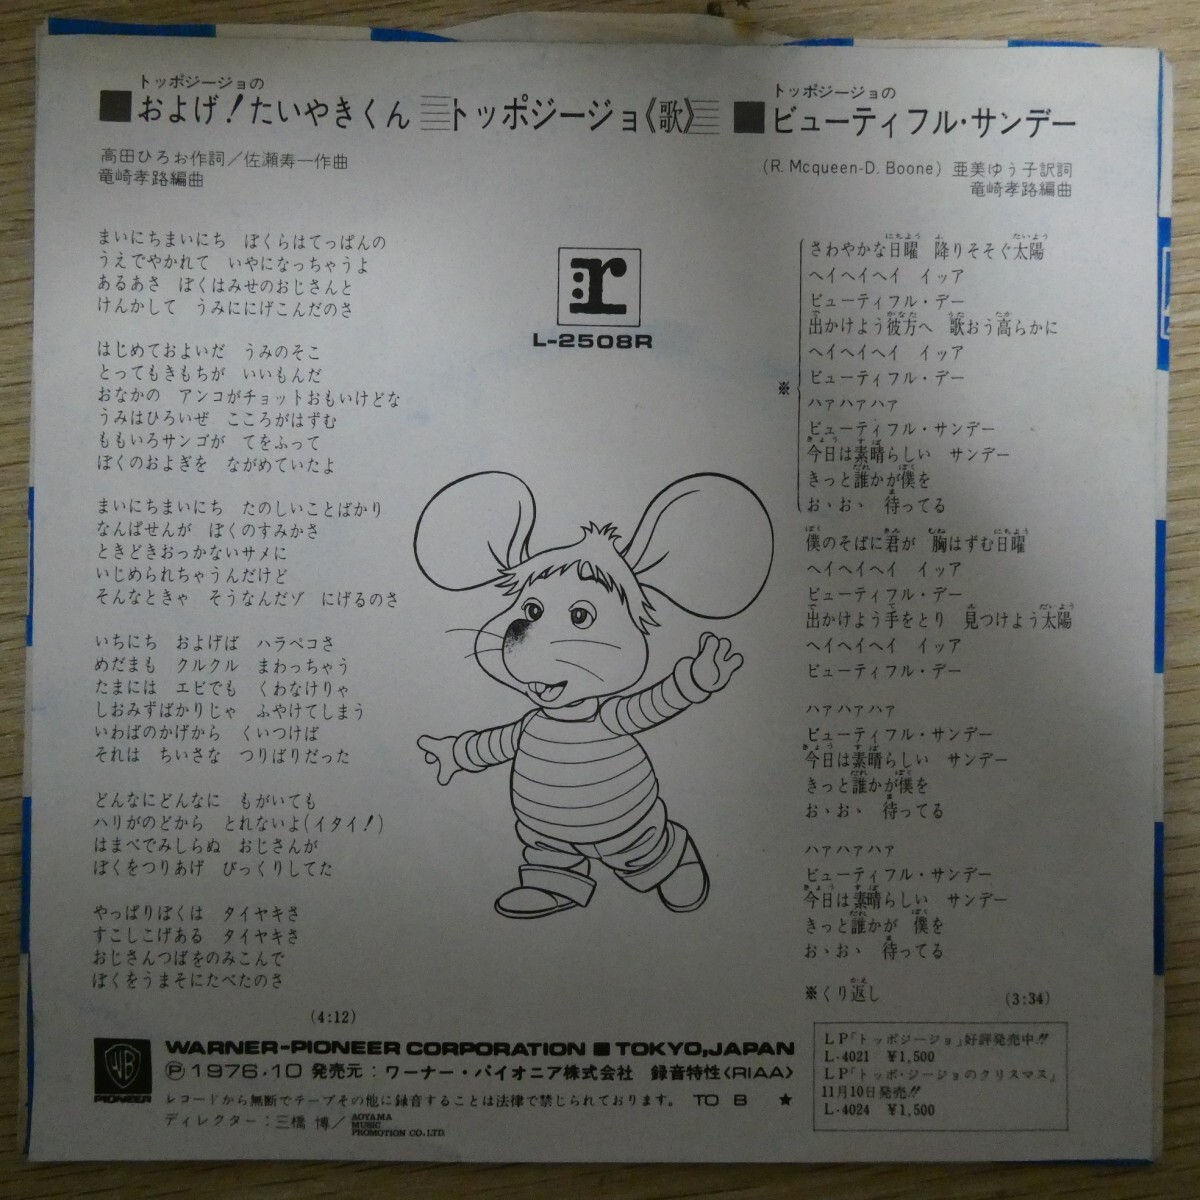 トッポジージョの
■およげ!たいやきくん
トッポジージョ《歌》
トッポジージョの
■ビューティフル・サンデー
高田ひろお作詞/佐瀬寿一作曲
竜崎孝路編曲
(R. Mcqueen-D. Boone) 亜美ゆう子訳詞
竜崎孝路編曲
まいにちまいにち ぼくらはてっぱんの
うえでやかれて いやになっちゃうよ
あるあさ ぼくはみせのおじさんと
けんかして うみににげこんだのさ
はじめておよいだ うみのそこ
とってもきもちが いいもんだ
おなかの アンコがチョットおもいけどな
うみはひろいぜ こころがはずむ
ももいろサンゴが てをふって
ぼくのおよぎを ながめていたよ
まいにちまいにち たのしいことばかり
なんぱせんが ぼくのすみかさ
ときどきおっかないサメに
いじめられちゃうんだけど
そんなときゃ そうなんだゾ にげるのさ
いちにち およげば ハラペコさ
めだまも クルクル まわっちゃう
たまには エビでも くわなけりゃ
しおみずばかりじゃ ふやけてしまう
いわばのかげから くいつけば
それは ちいさな つりばりだった
どんなにどんなに もがいても
ハリがのどから とれないよ(イタイ!)
はまべでみしらぬ おじさんが
ぼくをつりあげ びっくりしてた
やっぱりぼくは タイヤキさ
すこしこげある タイヤキさ
おじさんつばをのみこんで
ぼくをうまそにたべたのさ
(4:12)
r
L-2508R
にちよう ふ たいよう
さわやかな日曜 降りそそぐ太陽
ヘイヘイヘイ イッア
ビューティフル・デー
で かなた うた たか
出かけよう彼方へ 歌おう高らかに
ヘイヘイヘイ イッア
ビューティフル・デー
※
ハァハァハァ
ビューティフル・サンデー
きょう すば
今日は素晴らしい サンデー
だれ ぼく
きっと誰かが僕を
ま
おゝおゝ 待ってる
ぼく きみ むね にちよう
僕のそばに君が 胸はずむ日曜
ヘイヘイヘイ イッア
ビューティフル・デー
で て み たいよう
出かけよう手をとり 見つけよう太陽
ヘイヘイヘイ イッア
ビューティフル・デー
ハァハァハァ
ビューティフル・サンデー
きょう すば
今日は素晴らしい サンデー
だれ ぼく
きっと誰かが僕を
ま
おゝおゝ 待ってる
ハァハァハァ
ビューティフル・サンデー
きょう すば
今日は素晴らしい サンデー
だれ ぼく
きっと誰かが 僕を
ま
おゝおゝ 待ってる
かえ
※くり返し
(3:34)
WB
PIONEER
WARNER-PIONEER CORPORATION ■ TOKYO, JAPAN
Ⓟ1976·10 発売元:ワーナー・パイオニア株式会社 録音特性〈RIAA〉
レコードから無断でテープその他に録音することは法律で禁じられております。 TO B ★
ディレクター:三橋 博/AOYAMA MUSIC PROMOTION CO.LTD.
LP「トッポジージョ」好評発売中!!
L-4021 ¥1,500
LP「トッポ・ジージョのクリスマス」
11月10日発売!!
L-4024 ¥1,500